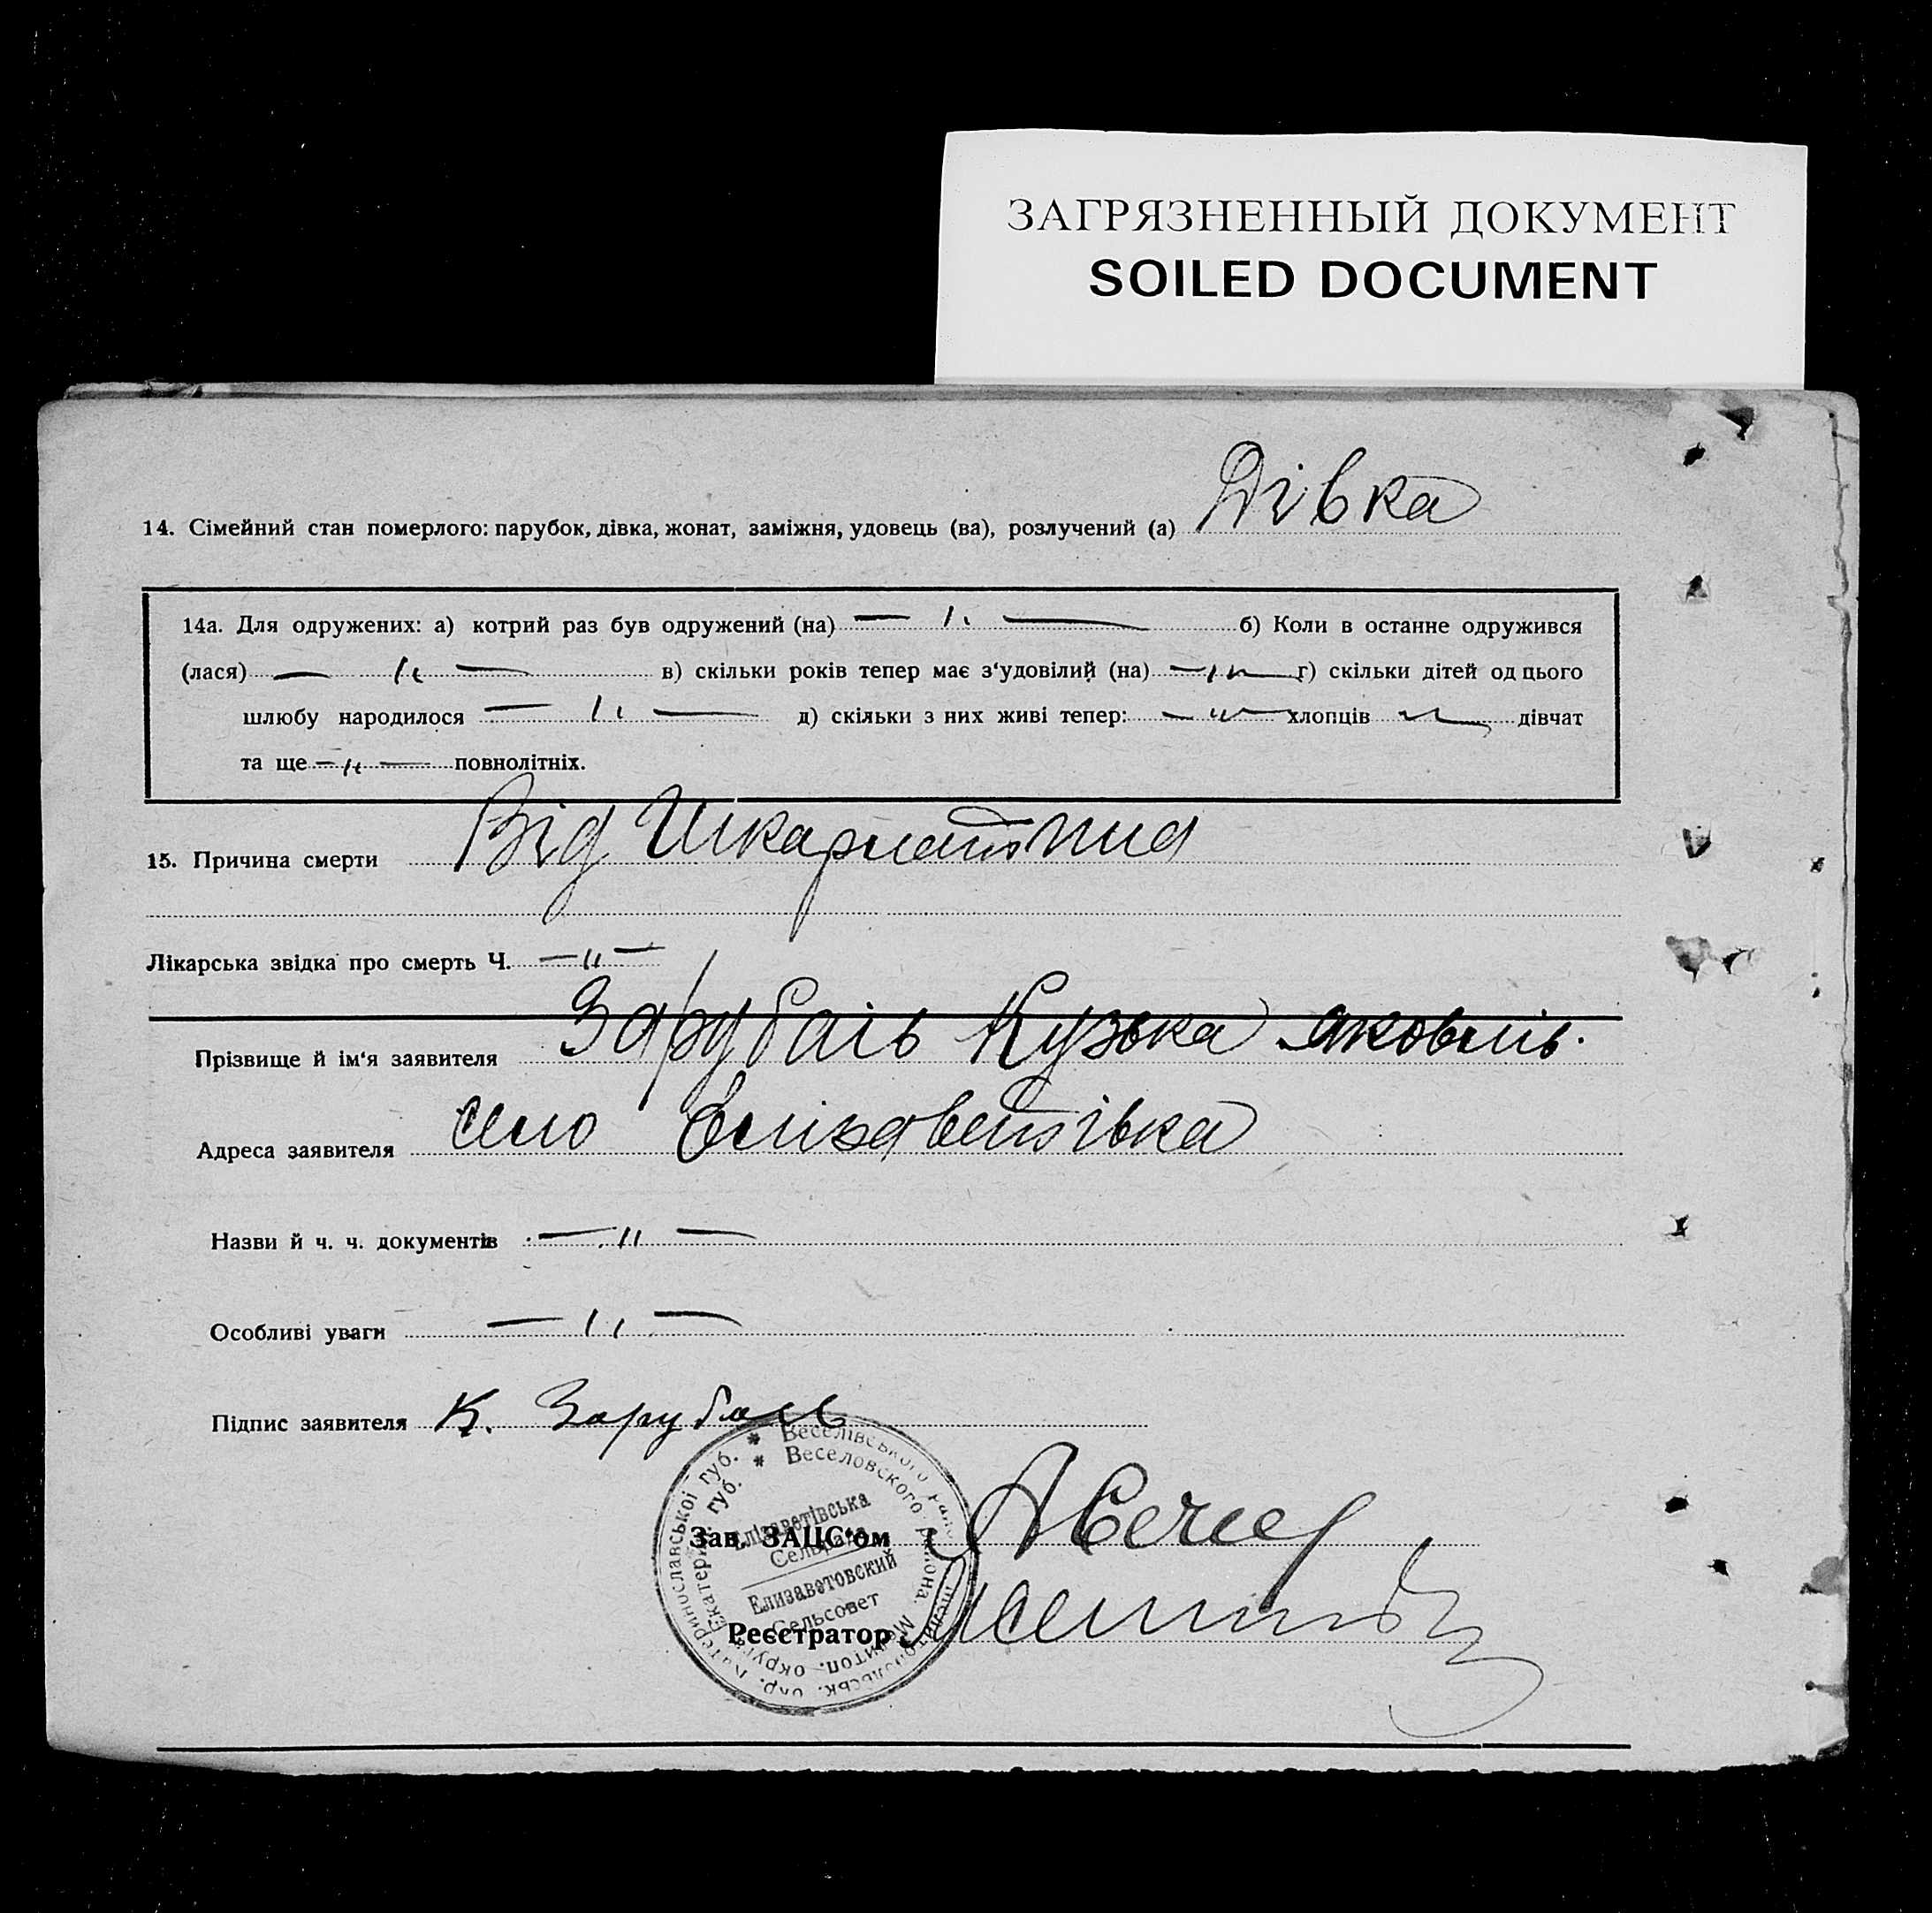 ЗАГРЯЗНЕННЫЙ ДОКУМЕНТ
SOILED DOCUMENT
14. Сімейний стан померлого: парубок, дівка, жонат, заміжня, удовець (ва), розлучений (а) Дівка
14а. Для одружених: а) котрий раз був одружений (на) — " — б) Коли в останнє одружився
(лася) — " — в) скільки років тепер має з'удовілий (на) — " — г) скільки дітей од цього
шлюбу народилося — " — д) скільки з них живі тепер: — " — хлопців — " — дівчат
та ще — " — повнолітніх.
15. Причина смерти Від Шкарлатина
Лікарська звідка про смерть Ч. — " —
Прізвище й ім'я заявителя Зарубаіь Кузька Яковлів.
Адреса заявителя село Єлізаветівка
Назви й ч. ч. документів — " —
Особливі уваги — " —
Підпис заявителя К. Зарубаіь
* Веселівського
* Веселовского района. Мелитоп. округа Екатерин. губ.
Катеринославської губ.
Єлізаветівська
Сельрада
Елизаветовский
Сельсовет
Зав. ЗАЦС'ом
Реєстратор